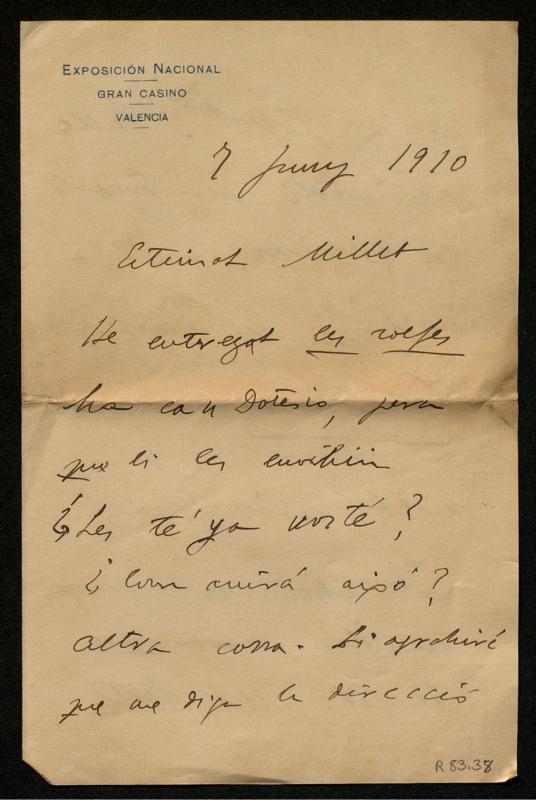 EXPOSICIÓN NACIONAL
GRAN CASINO
VALENCIA
7 Juny 1910
Estimat Millet
He entregat les solfes
ha can Dotesio, pera
que li les envihin
¿Les té ya vosté?
¿Com anirá aixó?
Altra cosa. Li agrahiré
que me diga la direcció
R 83.38